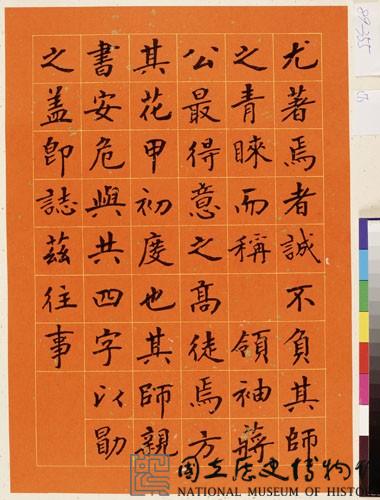 尤著焉者誠不負其師
之青睞而稱　領袖蔣
公最得意之高徒焉方
其花甲初度也其師親
書安危與共四字以勖
之盖即誌茲往事
89-355
國立歷史博物館
NATIONAL MUSEUM OF HISTOR